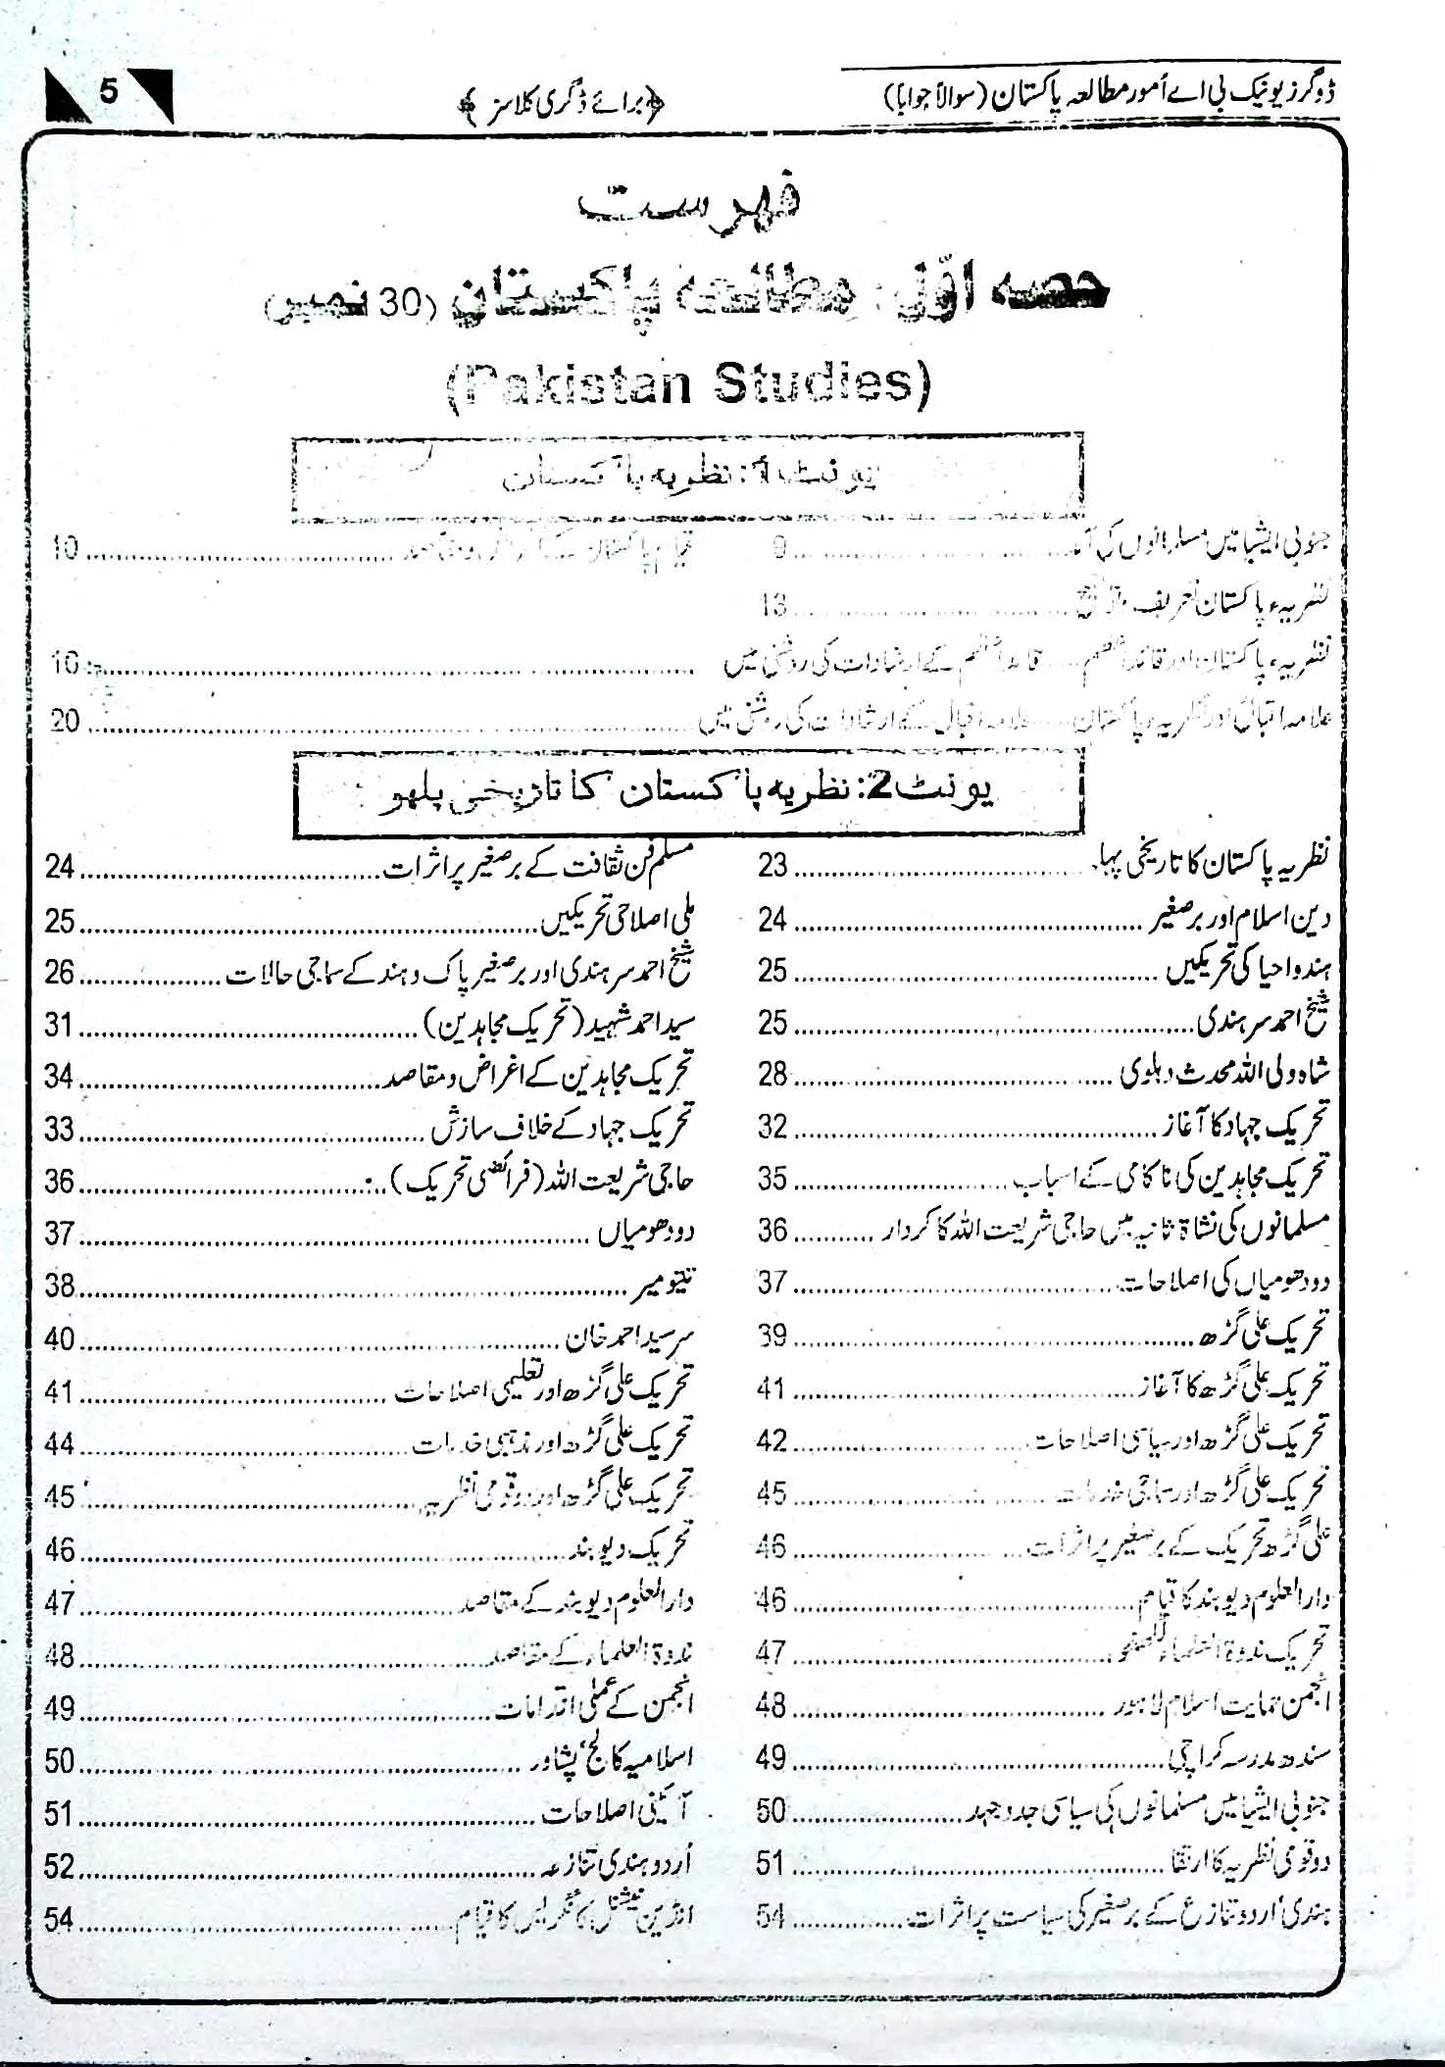 ڈوگرز یونیک بی اے اُمور مطالعہ پاکستان (سوالاً جواباً) ﴿برائے ڈگری کلاسز﴾ 5
فہرست
حصہ اوّل: مطالعہ پاکستان (30 نمبر)
(Pakistan Studies)
یونٹ 1: نظریہ پاکستان
جنوبی ایشیا میں مسلمانوں کی آمد ........ 9 قیام پاکستان کے ........ 10
نظریہء پاکستان تعریف ........ 13
نظریہء پاکستان اور قائداعظم ..... قائداعظم کے ارشادات کی روشنی میں ........ 16
علامہ اقبال اور نظریہء پاکستان ..... علامہ اقبال کے ارشادات کی روشنی میں ........ 20
یونٹ 2: نظریہ پاکستان کا تاریخی پہلو
نظریہ پاکستان کا تاریخی پہلو ........ 23 مسلم فن ثقافت کے برصغیر پر اثرات ........ 24
دین اسلام اور برصغیر ........ 24 ملی اصلاحی تحریکیں ........ 25
ہندو احیا کی تحریکیں ........ 25 شیخ احمد سرہندی اور برصغیر پاک و ہند کے سماجی حالات ........ 26
شیخ احمد سرہندی ........ 25 سید احمد شہید (تحریک مجاہدین) ........ 31
شاہ ولی اللہ محدث دہلوی ........ 28 تحریک مجاہدین کے اغراض و مقاصد ........ 34
تحریک جہاد کا آغاز ........ 32 تحریک جہاد کے خلاف سازش ........ 33
تحریک مجاہدین کی ناکامی کے اسباب ........ 35 حاجی شریعت اللہ (فرائضی تحریک) ........ 36
مسلمانوں کی نشاۃ ثانیہ میں حاجی شریعت اللہ کا کردار ........ 36 دودھو میاں ........ 37
دودھو میاں کی اصلاحات ........ 37 تیتو میر ........ 38
تحریک علی گڑھ ........ 39 سرسید احمد خان ........ 40
تحریک علی گڑھ کا آغاز ........ 41 تحریک علی گڑھ اور تعلیمی اصلاحات ........ 41
تحریک علی گڑھ اور سیاسی اصلاحات ........ 42 تحریک علی گڑھ اور مذہبی خدمات ........ 44
تحریک علی گڑھ اور سماجی خدمات ........ 45 تحریک علی گڑھ اور دو قومی نظریہ ........ 45
علی گڑھ تحریک کے برصغیر پر اثرات ........ 46 تحریک دیوبند ........ 46
دارالعلوم دیوبند کا قیام ........ 46 دارالعلوم دیوبند کے مقاصد ........ 47
تحریک ندوۃ العلماء لکھنو ........ 47 ندوۃ العلماء کے مقاصد ........ 48
انجمن حمایت اسلام لاہور ........ 48 انجمن کے عملی اقدامات ........ 49
سندھ مدرسہ کراچی ........ 49 اسلامیہ کالج، پشاور ........ 50
جنوبی ایشیا میں مسلمانوں کی سیاسی جدوجہد ........ 50 آئینی اصلاحات ........ 51
دو قومی نظریہ کا ارتقا ........ 51 اُردو ہندی تنازعہ ........ 52
ہندی اُردو تنازع کے برصغیر کی سیاست پر اثرات ........ 54 انڈین نیشنل کانگریس کا قیام ........ 54